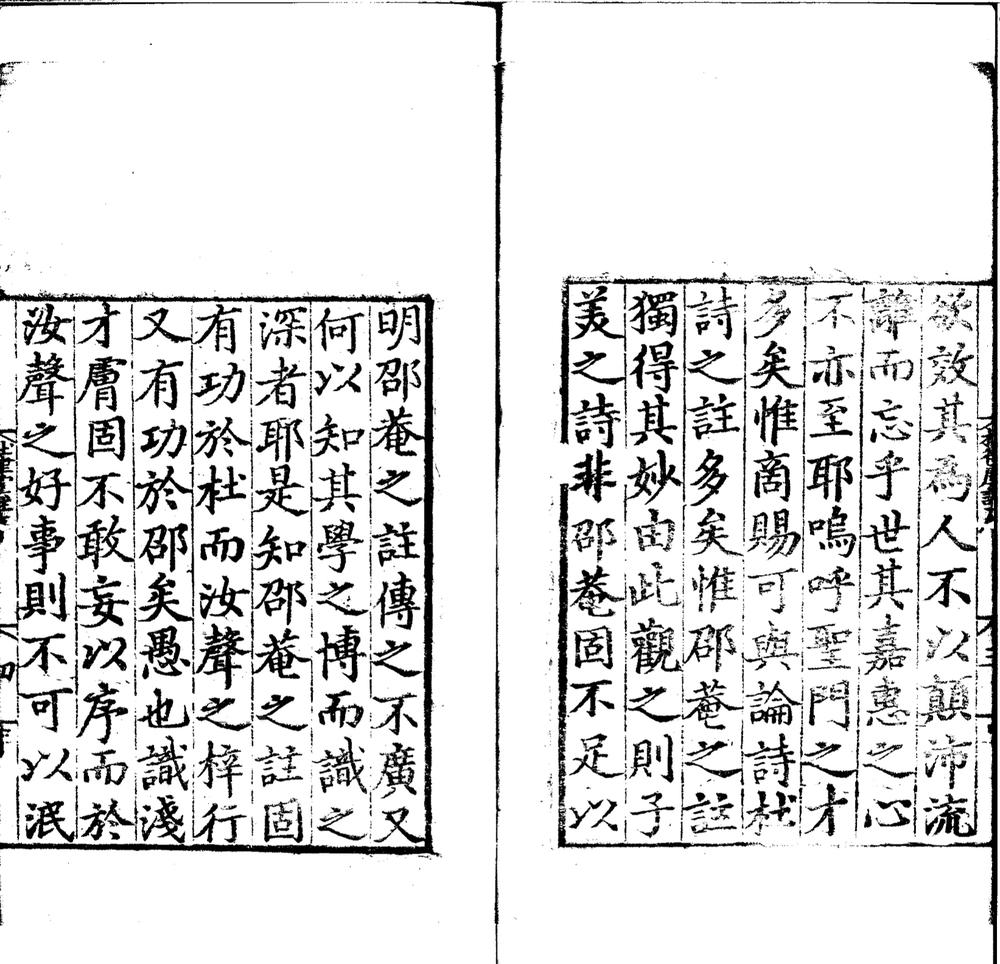 欲效其為人不以顛沛流
離而忘乎世其嘉惠之心
不亦至耶嗚呼聖門之才
多矣惟商賜可與論詩杜
詩之註多矣惟邵菴之註
獨得其妙由此觀之則子
美之詩非邵菴固不足以
明邵菴之註傳之不廣又
何以知其學之博而識之
深者耶是知邵菴之註固
有功於杜而汝聲之梓行
又有功於邵矣愚也識淺
才膚固不敢妄以序而於
汝聲之好事則不可以泯